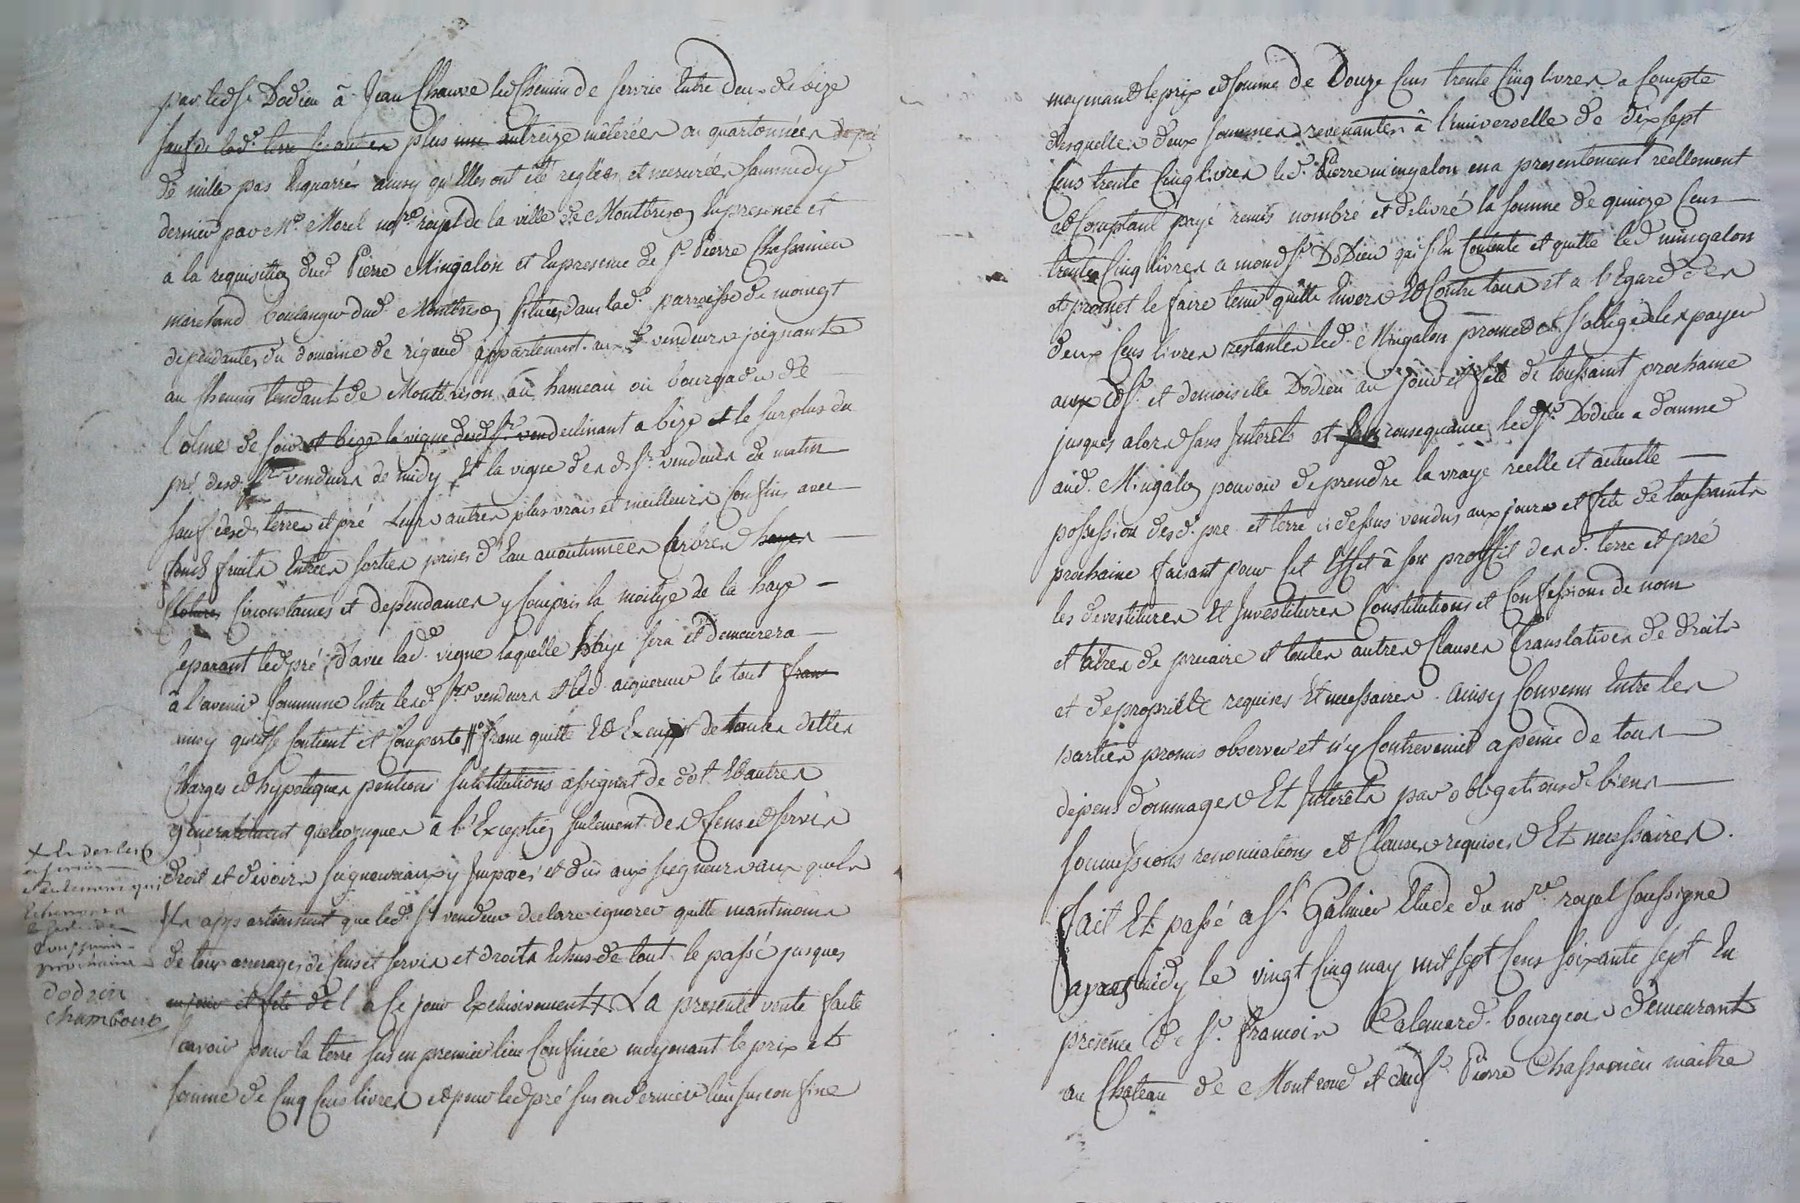 par led. Sr. Dodieu â Jean Chauve led. Chemin de servie Entre deux de bize
sauf de lad. terre plus autreize mêterées ou quartonnées
de mille pas Equarrés ainsy qu'Elles ont été reglées et mesurées samedy
dernier par Me. Morel nore. royal de la ville de Montbrison En presence et
a la requisition dud. Pierre Mingalon et En presence de Sr. Pierre Chassanieu
marchand boulanger dud. Montbrison situées dans lad. parroisse de moingt
dependantes du domaine de rigaud appartenant aux Srs. vendeurs joignant
au chemin tendant de Montbrison au hameau ou bourgade de
l'olme de soir et bize la vigne desd. Sr. vend declinant a bize et le surplus du
pré desd. Srs. vendeurs de midy Et la vigne desd. Srs. vendeurs de matin
sauf desd. terres et pré Leurs autres plus vrais et meilleurs Confins avec
fonds fruits Entrées sorties prises d'Eau accoutumées Arbres hayes
Clotures Circonstances et dependances y Compris la moitye de la haye
separant led. pré d'avec lad. vigne laquelle haye sera et demeurera
â l'avenir Commune Entre lesd. Srs. vendeurs et led. aiquereur le tout franc
ainsy qu'il se Contient et Comporte franc quitte Et Exempt de toutes dettes
Charges et hypoteques pentions substitutions assignat de dot Et autres
generalement quelconques â l'Exception seulement des Cens et servis
droit et devoirs seigneuriaux y Imposés et dûs aux seigneurs auxquels
Ils appartiennent que led. Sr. vendeur declare ignorer quitte neantmoins
de tous arrerages de Cens et servis et droits Echus de tout le passé jusques
au jour et fête de l a ce jour Exclusivement + La presente vente faite
scavoir pour la terre sus en premier lieu Confinée moyenant le prix et
somme de Cinq Cens livres et pour led. pré sus en dernier lieu sus confine
Echeront a
prochaine
dodieu
chambour
moyenant le prix et somme de Douze Cens trente Cinq livres a Compte
desquelles deux sommes revenantes â l'universelle de dix sept
Cens trente Cinq livres led. Pierre mingalon en a presentement reellement
et Comptant payé remis nombré et delivré la somme de quinze Cens
trente Cinq livres a mond. Sr. Dodieu qui s'En Contente et quitte led. mingalon
et promet le faire tenir quitte Envers Et Contre tous et a l'Egard des
deux Cens livres restantes led. Mingalon promet et s'oblige de les payer
aux d. Sr. et demoiselle Dodieu au jour et fête de toussaint prochaine
jusques alors sans Interêts et consequance led. Sr. Dodieu a donné
aud. Mingalon pouvoir de prendre la vraye reelle et actuelle
possession desd. pre et terre ci dessus vendus aux jour et fête de toussaints
prochaine faisant pour Cet Effet â son proffit desd. terre et pré
les devestitures Et Investitures Constitutions et Confessions de nom
et tîtres de precaire et toutes autres Clauses Translatives de droits
et de proprieté requises Et necessaires. Ainsy Convenu Entre les
parties promis observer et n'y Contrevenir a peine de tous
depens dommages Et Interêts par obligations de biens
soumissions renonciations et Clauses requises Et necessaires.
Fait Et passé a St. Galmier Etude du nore. royal soussigné
apres midy le vingt Cinq may mil sept Cens soixante sept En
presence de Sr. francois Calemard bourgeois demeurant
au Chateau de Montrond et dud. Sr. Pierre Chassanieu maitre